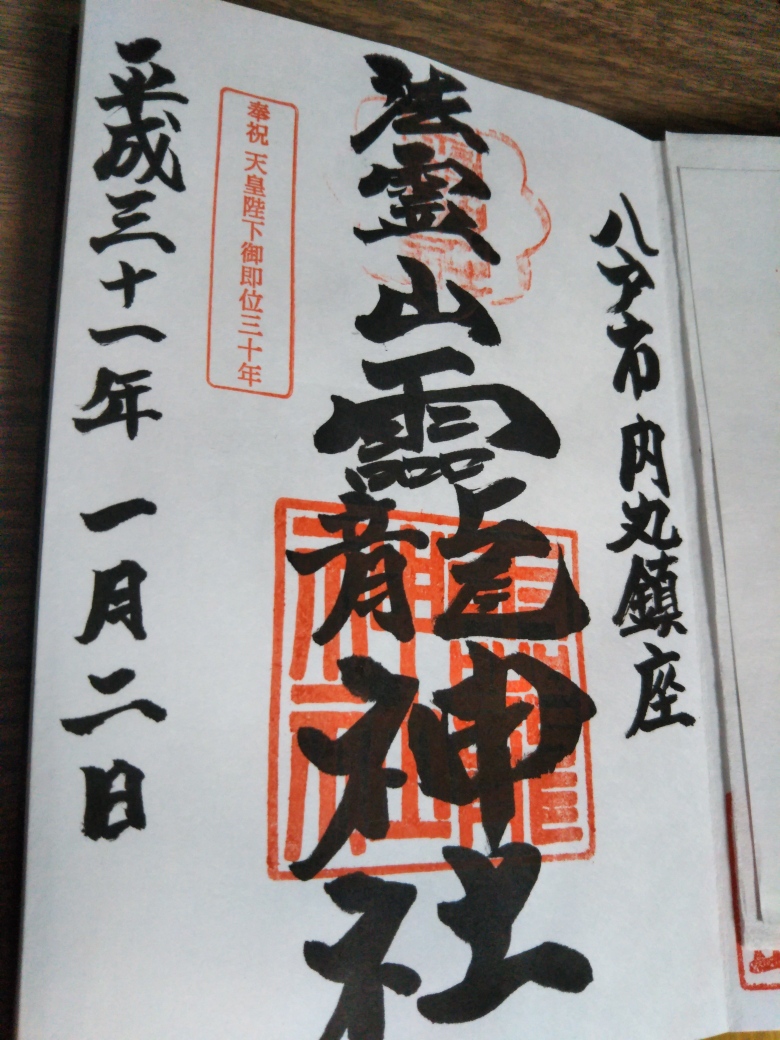 八戸市 内丸鎮座
法霊山龗神社
奉祝 天皇陛下御即位三十年
平成三十一年 一月二日